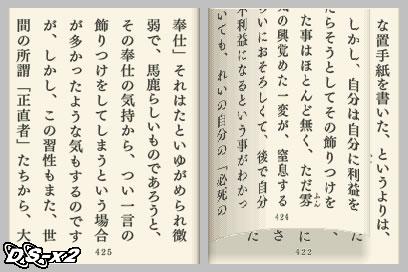 な置手紙を書いた、というよりは、
しかし、自分は自分に利益を
たらそうとしてその飾りつけを
た事はほとんど無く、ただ雰
ふん
気の興覚めた一変が、窒息する
らいにおそろしくて、後で自分
不利益になるという事がわかっ
いても、れいの自分の「必死の
424
さ
に
422
奉仕」それはたといゆがめられ微
弱で、馬鹿らしいものであろうと、
その奉仕の気持から、つい一言の
飾りつけをしてしまうという場合
が多かったような気もするのです
が、しかし、この習性もまた、世
間の所謂「正直者」たちから、大
425
DS-x2